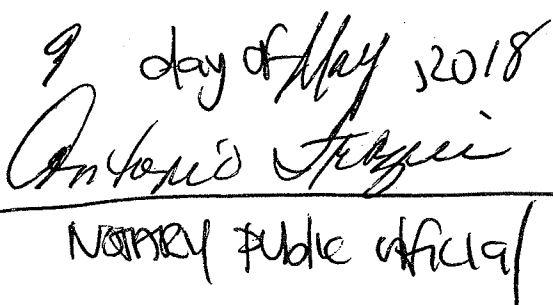 9 day of May, 2018
Antonio Frazier
NOTARY Public official